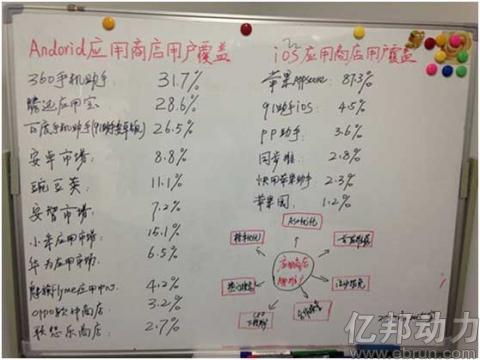 Andorid应用商店用户覆盖
360手机助手: 31.7%
腾迅应用宝 28.6%
百度手机助手(91助手安卓版) 26.5%
安卓市场: 8.8%
豌豆荚 11.1%
安智市场: 7.2%
小米应用市场: 15.1%
华为应用市场: 6.5%
魅族flyme应用中心 4.2%
OPPO软件商店: 3.2%
联想乐商店: 2.7%
iOS应用商店用户覆盖
苹果Appstore: 87.3%
91助手iOS: 4.5%
PP助手: 3.6%
同步推: 2.8%
快用苹果助手: 2.3%
苹果园: 1.2%
ASO优化
应用商店
亿邦动力
www.ebrun.com